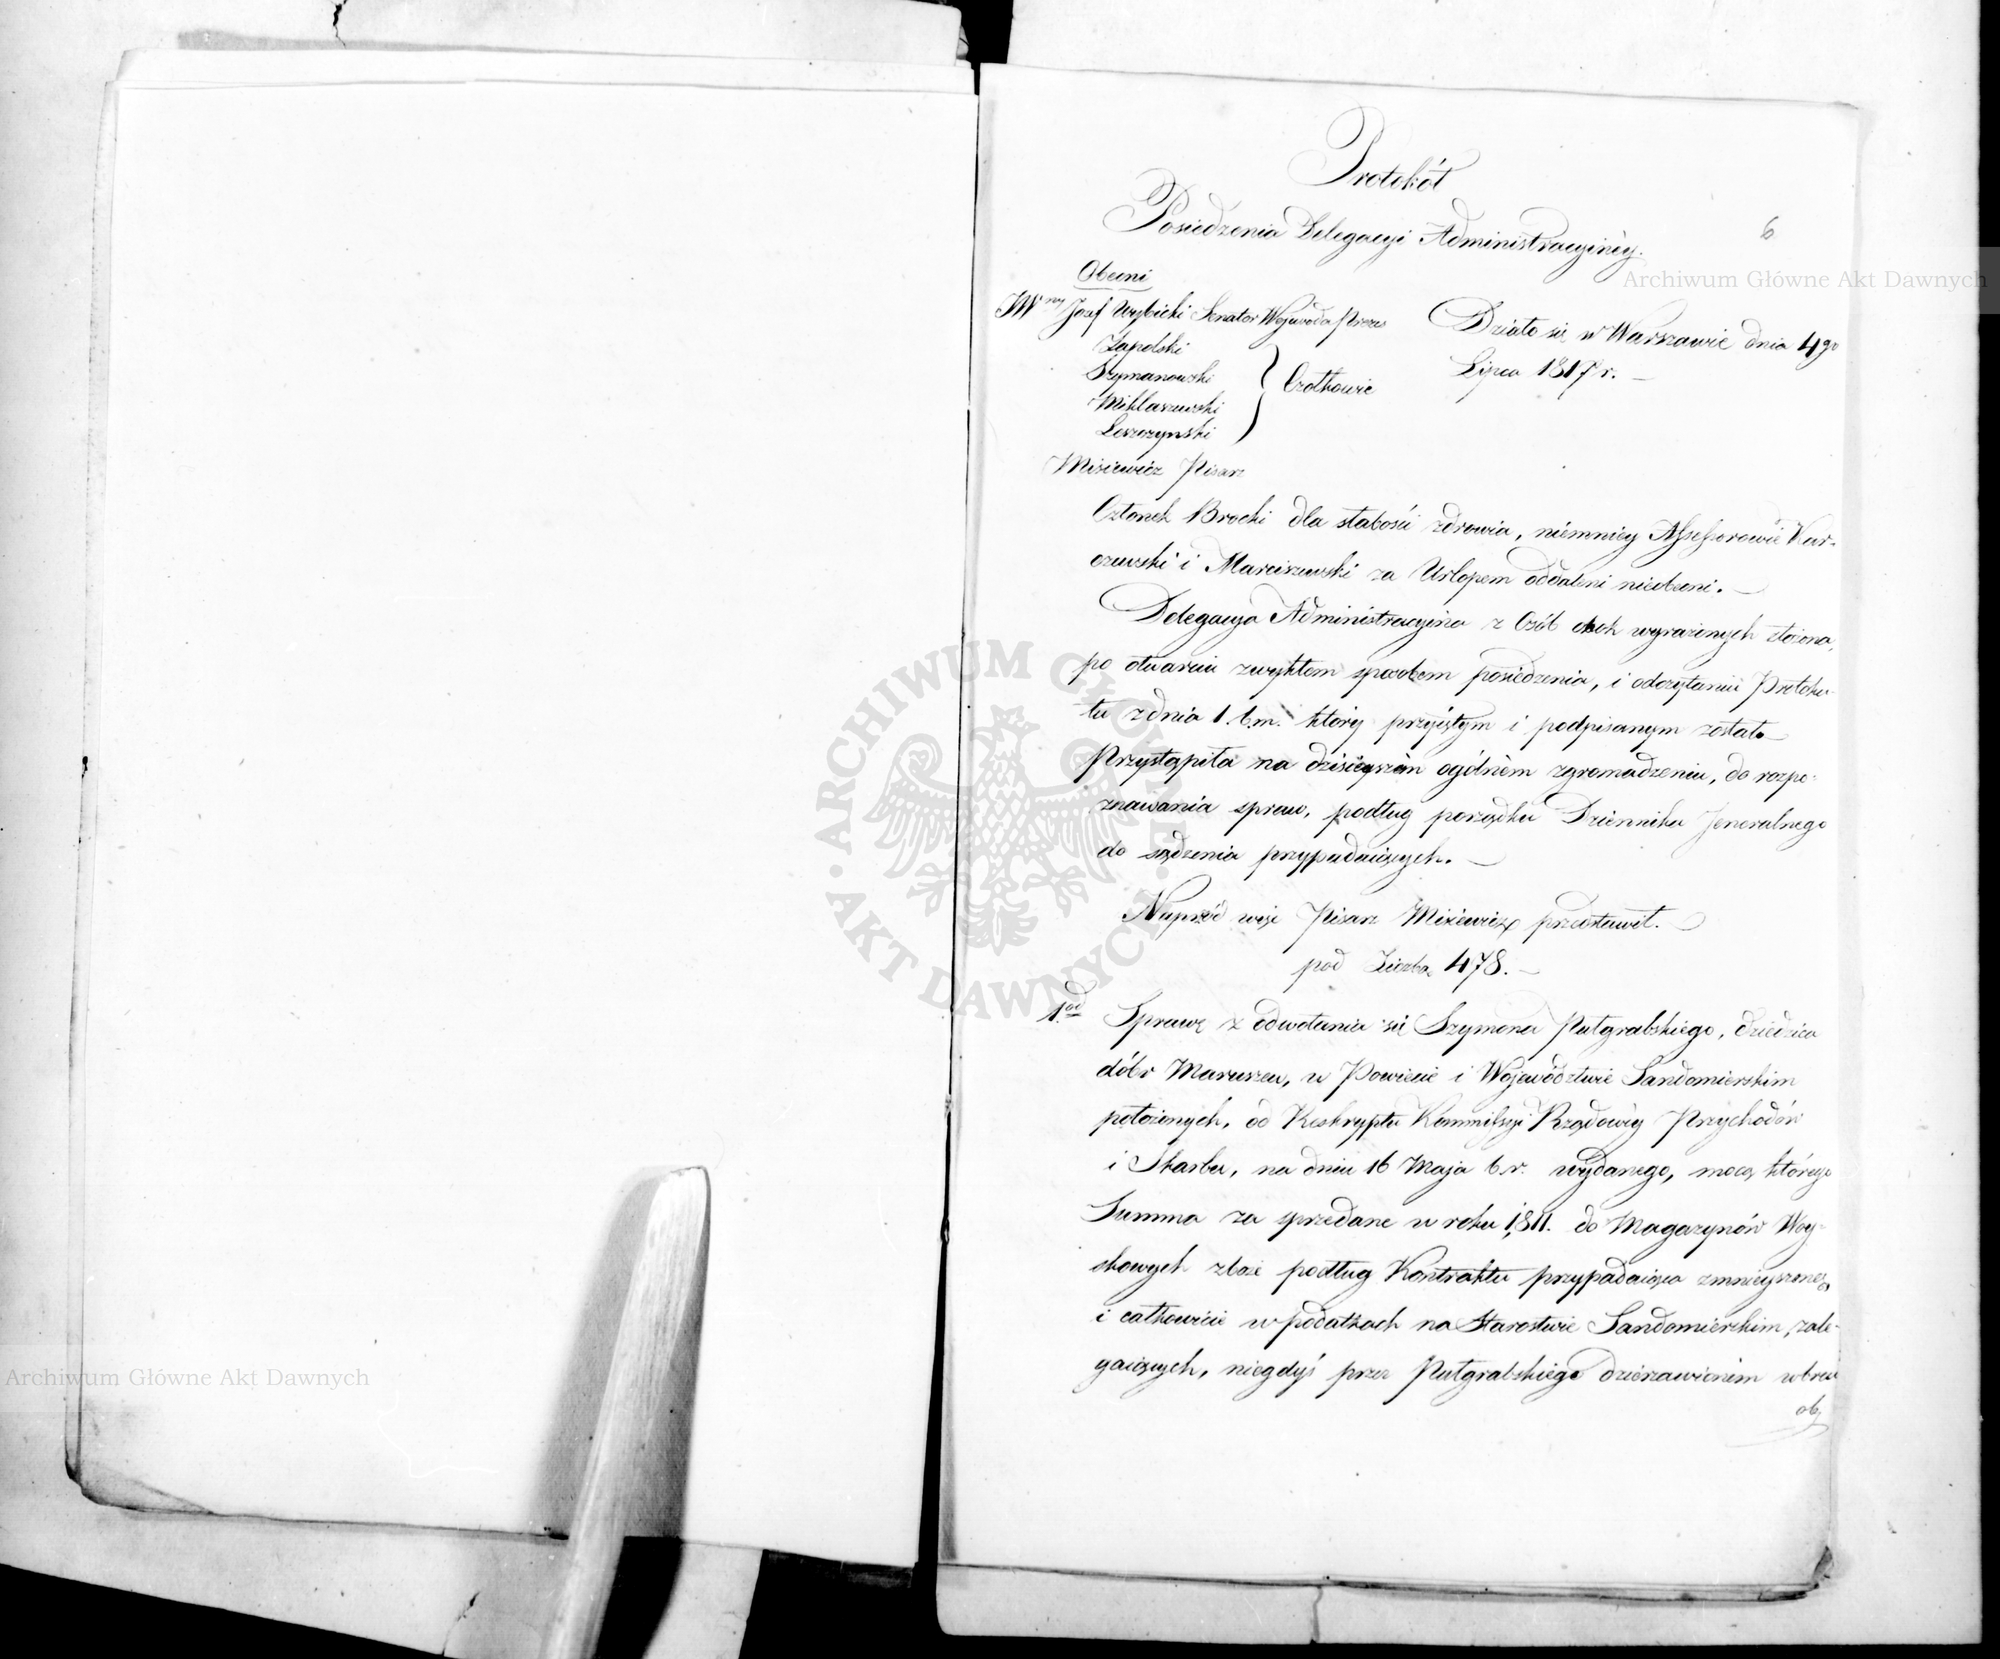 Protokół
Posiedzenia Delegacyi Administracyinéy.
6
Obecni
JW ny Józef Wybicki Senator Wojewoda Prezes
Zapolski
Szymanowski
Miklaszewski
Leszczynski
Członkowie
Misiewicz Pisarz
Działo się w Warszawie dnia 4go
Lipca 1817 r. —
Członek Brocki dla słabości zdrowia, niemniéy Assessorowie Kar-
czewski i Marciszewski za Urlopem oddaleni nieobecni. —
Delegacya Administracyina z Osób obok wyrażonych złożona,
po otwarciu zwykłem sposobem posiedzenia, i odczytaniu Protoku-
łu z dnia 1. b.m. który przyiętym i podpisanym został —
Przystąpiła na dzisieyszém ogólném zgromadzeniu, do rozpo-
znawania spraw, podług porządku Dziennika Jeneralnego
do sądzenia przypadaiących. —
Naprzód więc Pisarz Misiewicz przedstawił. —
pod Liczbą 478. —
1.od Sprawę z odwołania się Szymona Putgrabskiego, dziedzica
dóbr Maruszew, w Powiecie i Województwie Sandomierskim
położonych, od Reskryptu Kommissyi Rządowéy Przychodów
i Skarbu, na dniu 16 Maja b.r. wydanego, mocą którego
Summa za sprzedane w roku 1811. do Magazynów Woy-
skowych zboże podług Kontraktu przypadaiąca zmnieyszoną
i całkowicie w podatkach na Starostwie Sandomierskim, zale-
gaiących, niegdyś przez Putgrabskiego dzierżawioném wbrew
ob.
Archiwum Główne Akt Dawnych
Archiwum Główne Akt Dawnych
ARCHIWUM GŁÓWNE AKT DAWNYCH